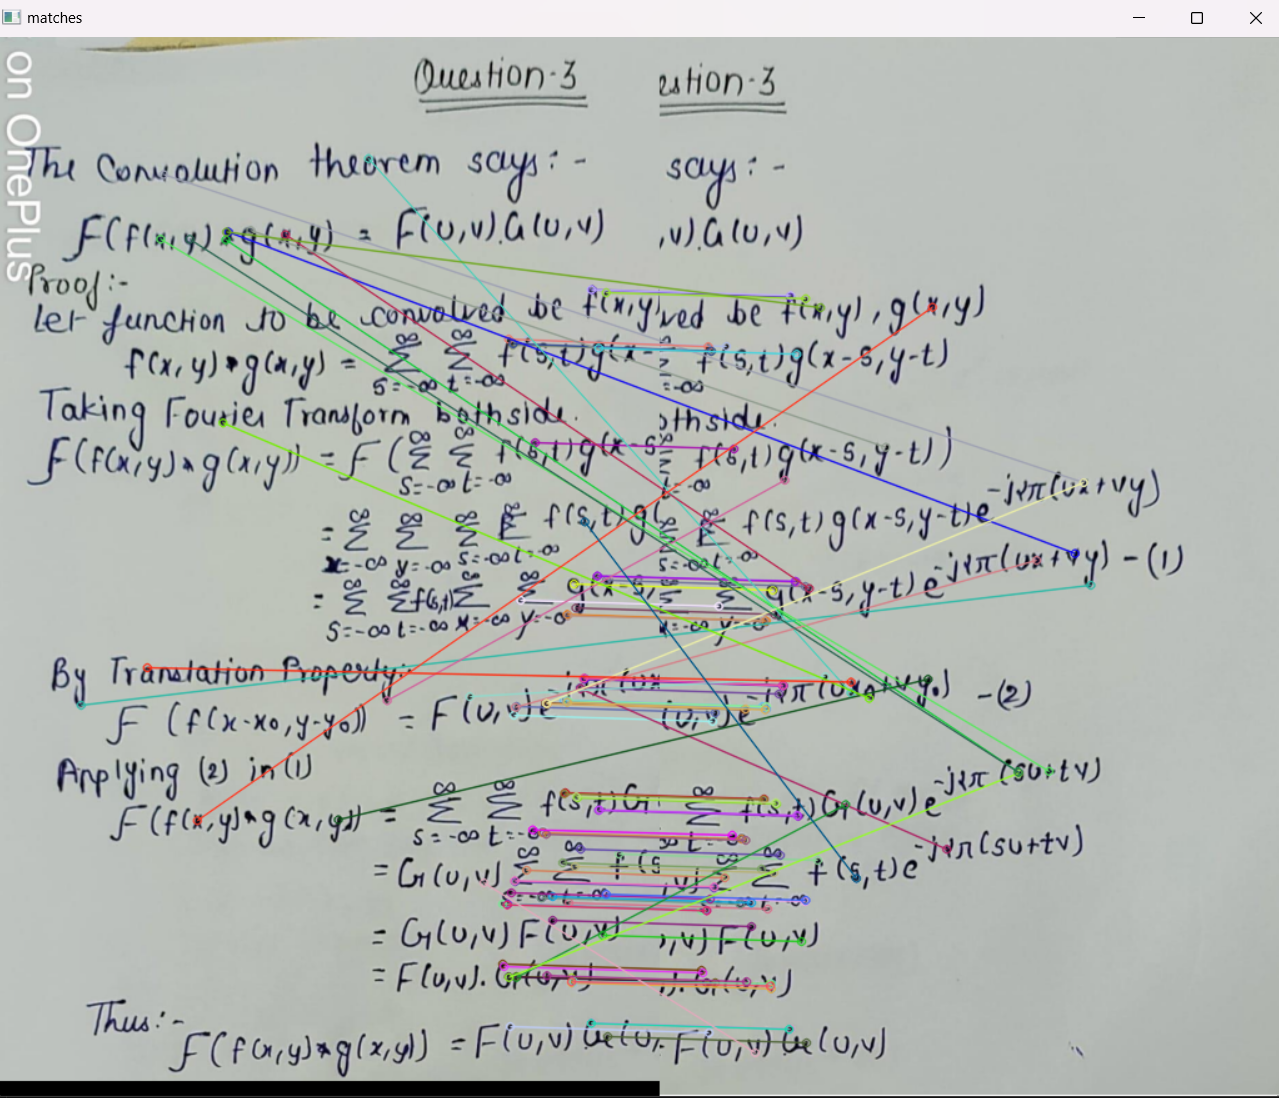 matches
on OnePlus
Question-3 estion-3
The Convolution theorem says:- says:-
F(f(x,y)*g(x,y) = F(u,v).G(u,v) ,v).G(u,v)
Proof:-
Let function to be convolved be f(x,y) ved be f(x,y), g(x,y)
f(x,y)*g(x,y) = Σ Σ f(s,t)g(x- f(s,t)g(x-s,y-t)
s=-∞ t=-∞ =-∞
Taking Fourier Transform bothside. othside.
F(f(x,y)*g(x,y)) = F(Σ Σ f(s,t)g(x-s f(s,t)g(x-s,y-t))
s=-∞ t=-∞ t=-∞
= Σ Σ Σ Σ f(s,t)g( Σ Σ f(s,t)g(x-s,y-t)e^-j2π(ux+vy)
x=-∞ y=-∞ s=-∞ t=-∞ s=-∞ t=-∞
= Σ Σ f(s,t) Σ Σ g(x-s, Σ Σ g(x-s,y-t)e^-j2π(ux+vy) -(1)
s=-∞ t=-∞ x=-∞ y=-∞ x=-∞ y=-∞
By Translation Property:
F (f(x-x0,y-y0)) = F(u,v)e^-j2π(ux (u,v)e^-j2π(ux0+vy0) -(2)
Applying (2) in (1)
F(f(x,y)*g(x,y)) = Σ Σ f(s,t)G Σ f(s,t)G(u,v)e^-j2π(su+tv)
s=-∞ t=-∞ t=-∞
= G(u,v) Σ Σ f(s ,v) Σ Σ f(s,t)e^-j2π(su+tv)
s=-∞ t=-∞
= G(u,v)F(u,v) ,v)F(u,v)
= F(u,v).G(u,v) ).G(u,v)
Thus:-
F(f(x,y)*g(x,y)) = F(u,v)G(u, F(u,v)G(u,v)